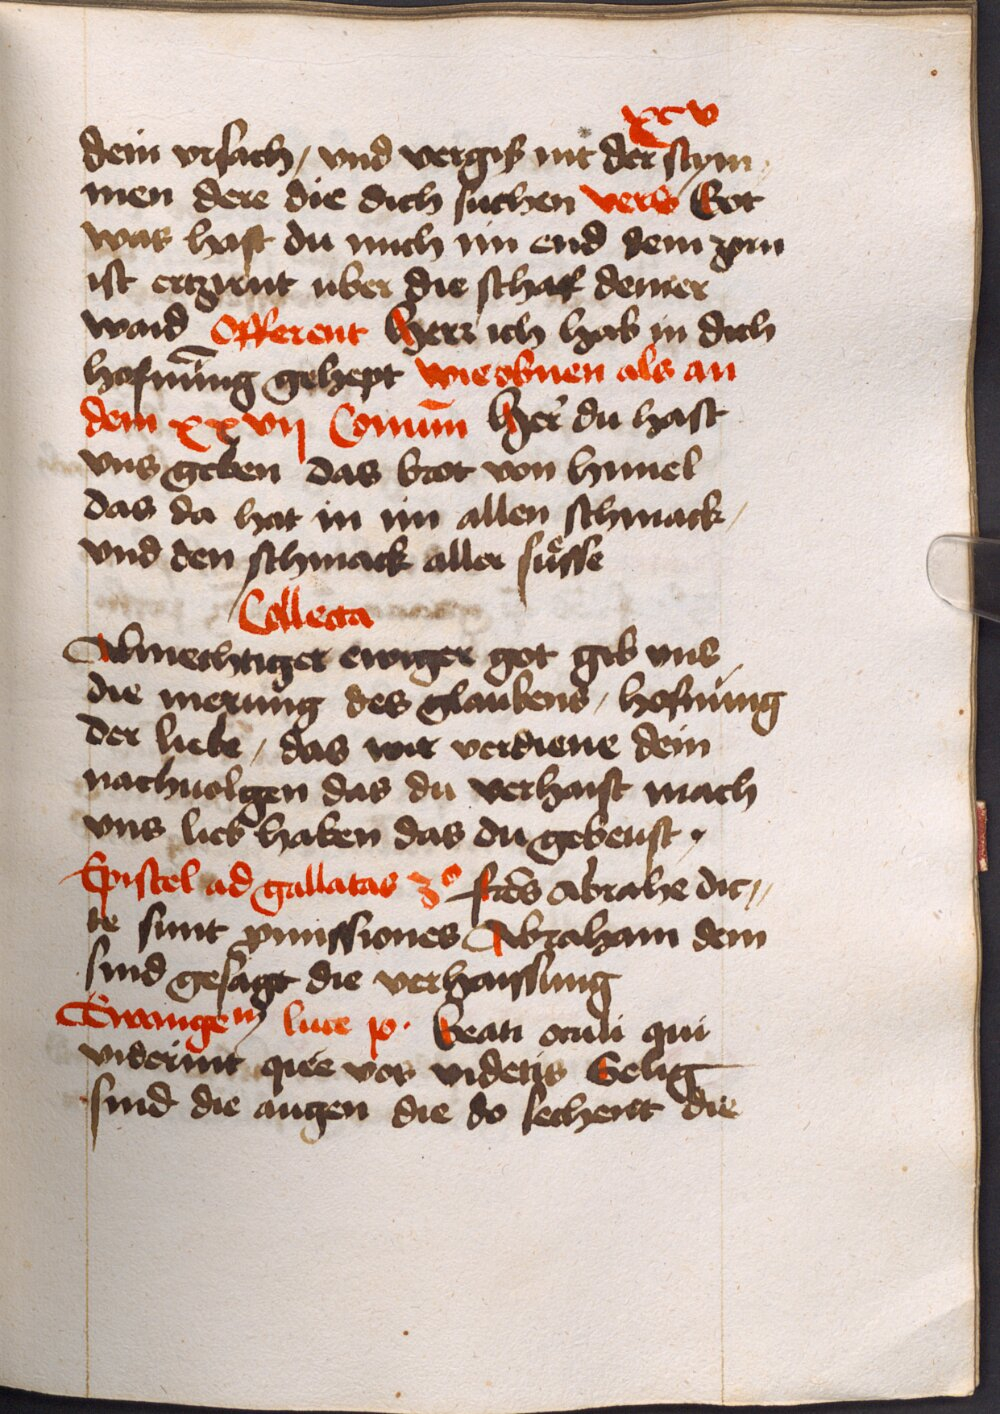 xcv
dein vrsach / vnd vergis nit der stym
men dere die dich suchen vers Got
was hast du mich im end dein zorn
ist ertzirnt uber die schaf deiner
waid Offerent Herr ich hab in dich
hofnūng gehept wie obnen als an
dem xxvij Comūn Her du hast
vns geben das brot von himel
das da hat in im allen schmack /
vnd den schmack aller süsse
Collecta
Almechtiger ewiger got gib vns
die merung des glaubens / hofnung
der liebe / das wir verdiene dein
nachuolgen das du verhaist mach
vns lieb haben das du gebeust .
Epistel ad gallatas 3º fres Abrahe dic //
te sunt pmissiones Abraham dem
sind gesagt die verhaissung
Ewangen luce p . Beati oculi qui
viderint que vos videtis Selig
sind die augen die do sechent die